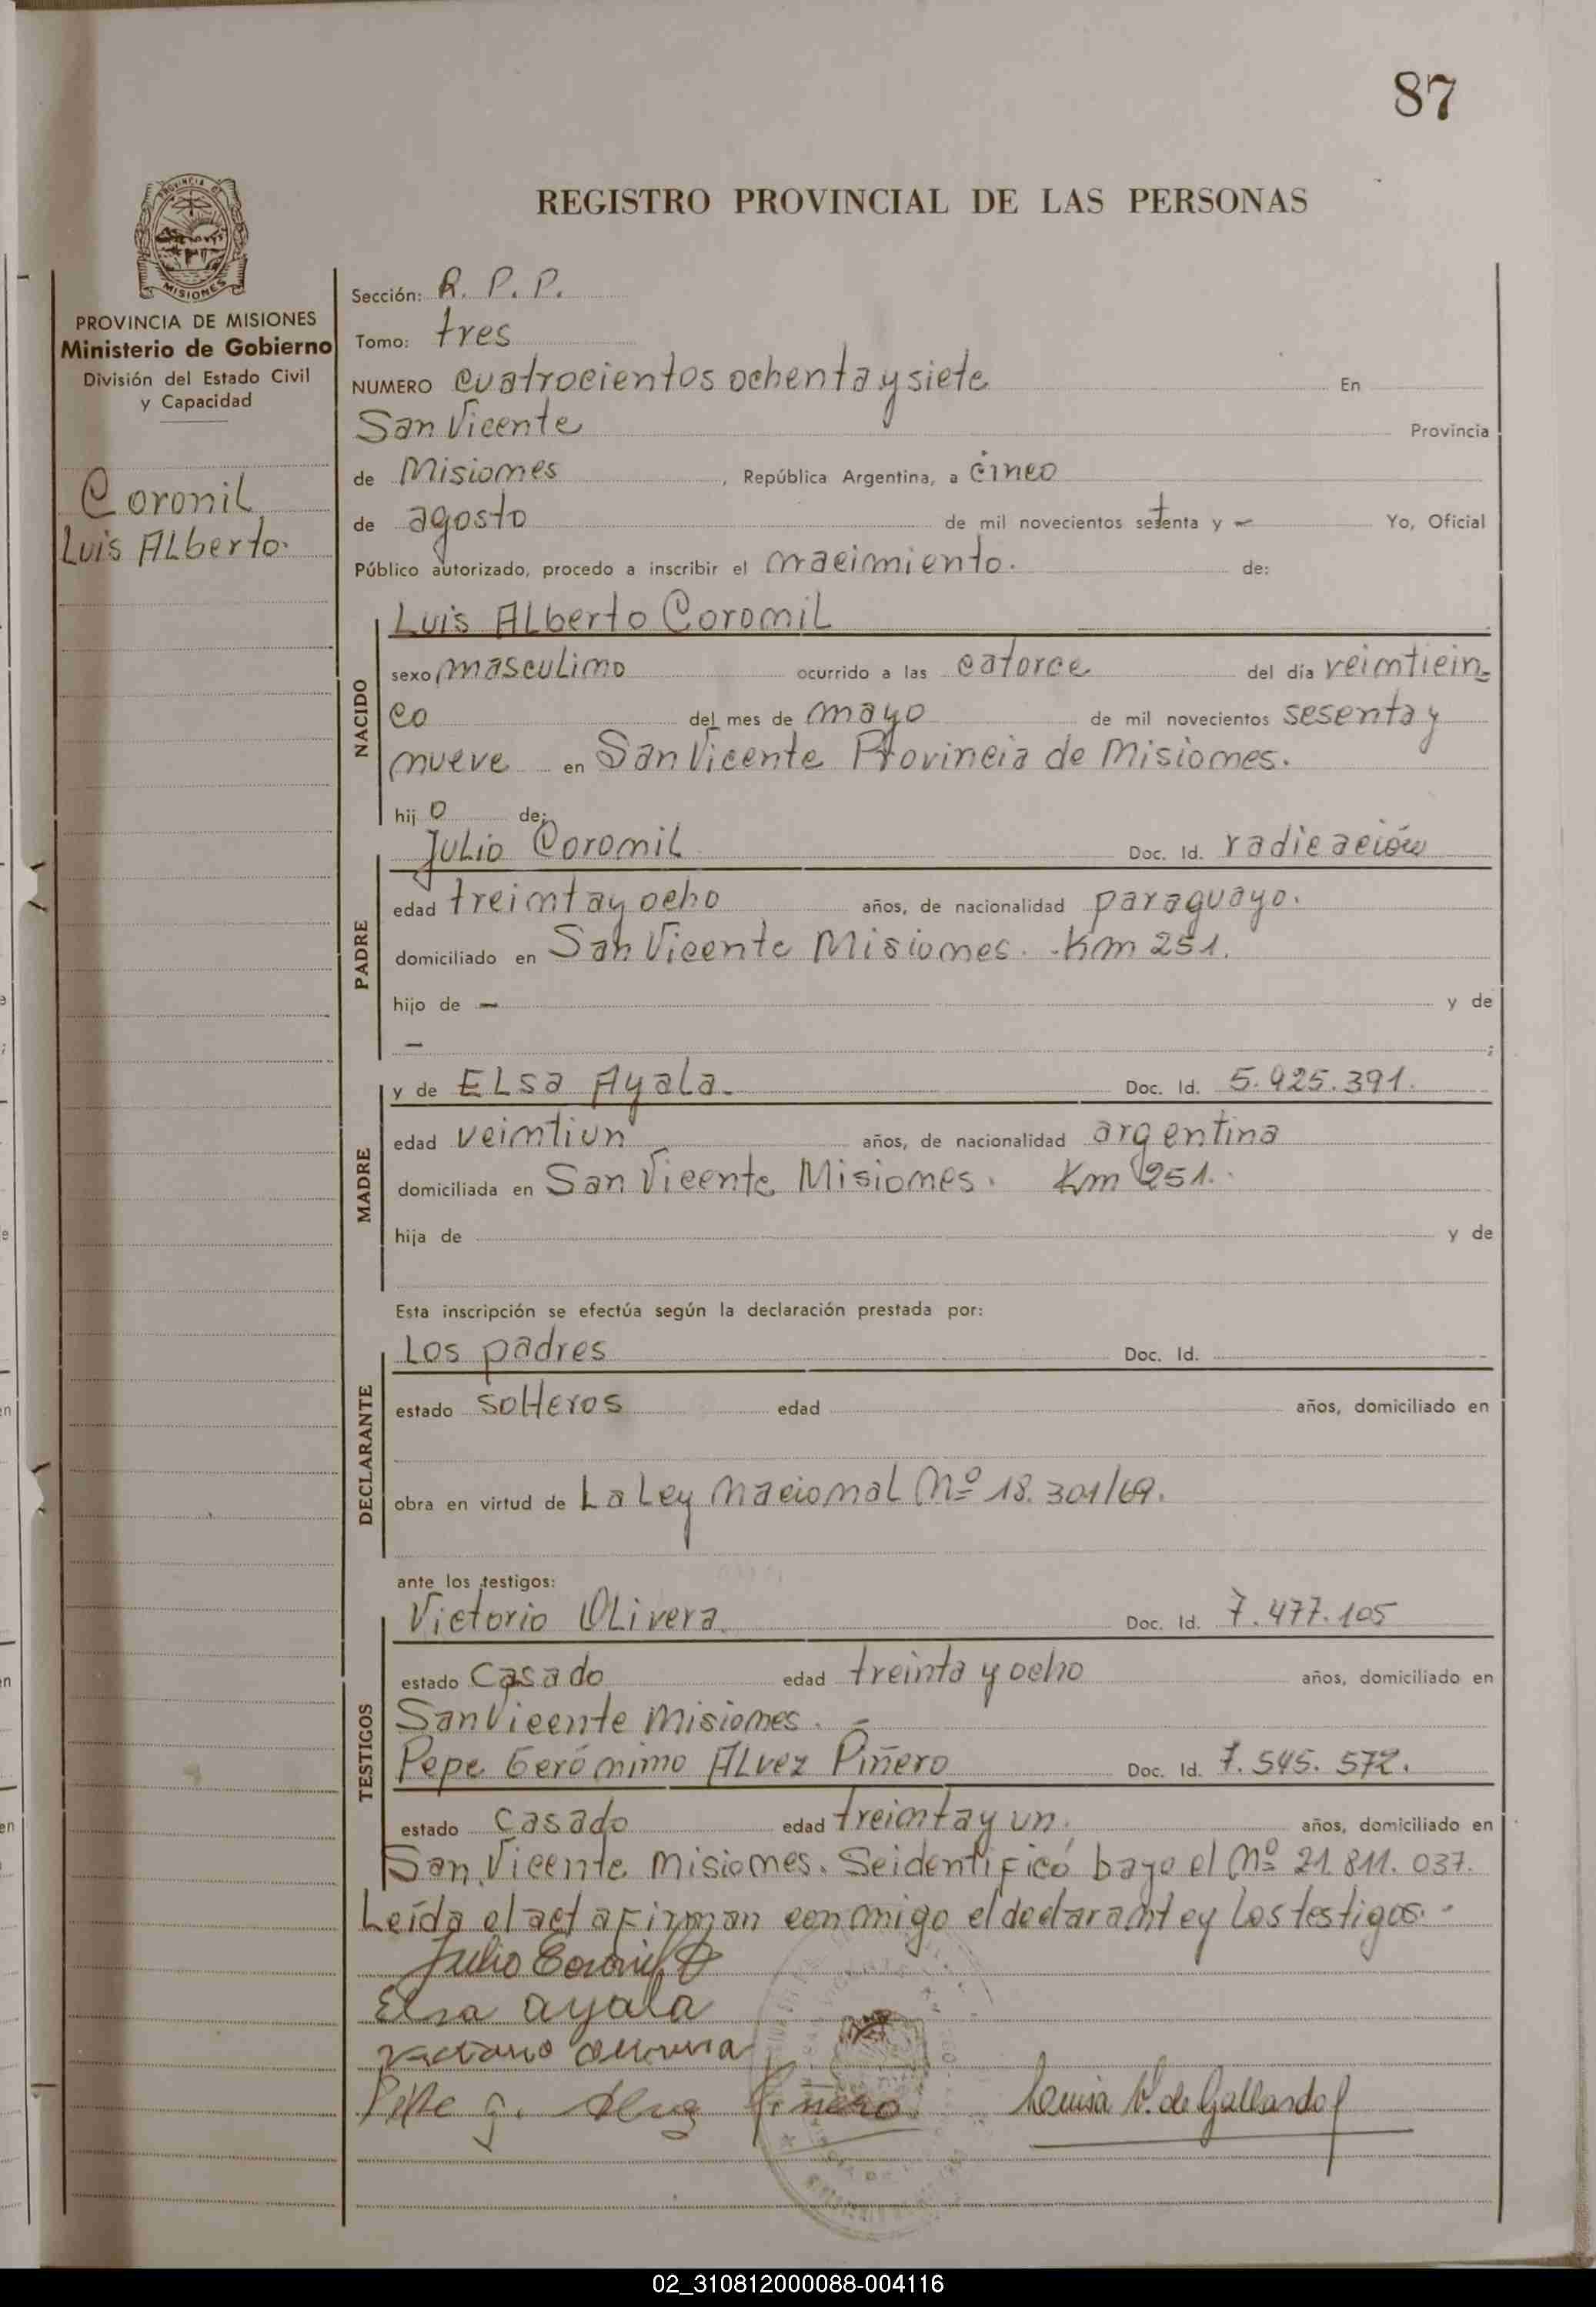 87
REGISTRO PROVINCIAL DE LAS PERSONAS
PROVINCIA DE
MISIONES
PROVINCIA DE MISIONES
Ministerio de Gobierno
División del Estado Civil
y Capacidad
Coronil
Luis Alberto.
Sección: R. P. P.
Tomo: tres
NUMERO cuatrocientos ochenta y siete En
San Vicente Provincia
de Misiones, República Argentina, a cinco
de agosto de mil novecientos setenta y — Yo, Oficial
Público autorizado, procedo a inscribir el nacimiento. de:
NACIDO
Luis Alberto Coronil
sexo masculino ocurrido a las catorce del día veinticin=
co del mes de mayo de mil novecientos sesenta y
nueve en San Vicente Provincia de Misiones.
hijo de:
PADRE
Julio Coronil Doc. Id. radicación
edad treinta y ocho años, de nacionalidad paraguayo.
domiciliado en San Vicente Misiones. - Km 251.
hijo de — y de
— ;
MADRE
y de Elsa Ayala. Doc. Id. 5.925.391.
edad veintiun años, de nacionalidad argentina
domiciliada en San Vicente Misiones. Km 251.
hija de y de
Esta inscripción se efectúa según la declaración prestada por:
DECLARANTE
Los padres Doc. Id.
estado solteros edad años, domiciliado en
obra en virtud de La Ley Nacional Nº 18.301/69.
ante los testigos:
TESTIGOS
Victorio Olivera. Doc. Id. 7.477.105
estado casado edad treinta y ocho años, domiciliado en
San Vicente Misiones. —
Pepe Gerónimo Alvez Piñero Doc. Id. 7.545.572.
estado casado edad treinta y un, años, domiciliado en
San Vicente Misiones. Se identificó bajo el Nº 21.811.037.
Leída el acta firman conmigo el declarante y los testigos. -
Julio Coronil
Elsa ayala
Victorio Olivera
Pepe G. Alvez Piñero Louisa V. de Gallardo
02_310812000088-004116